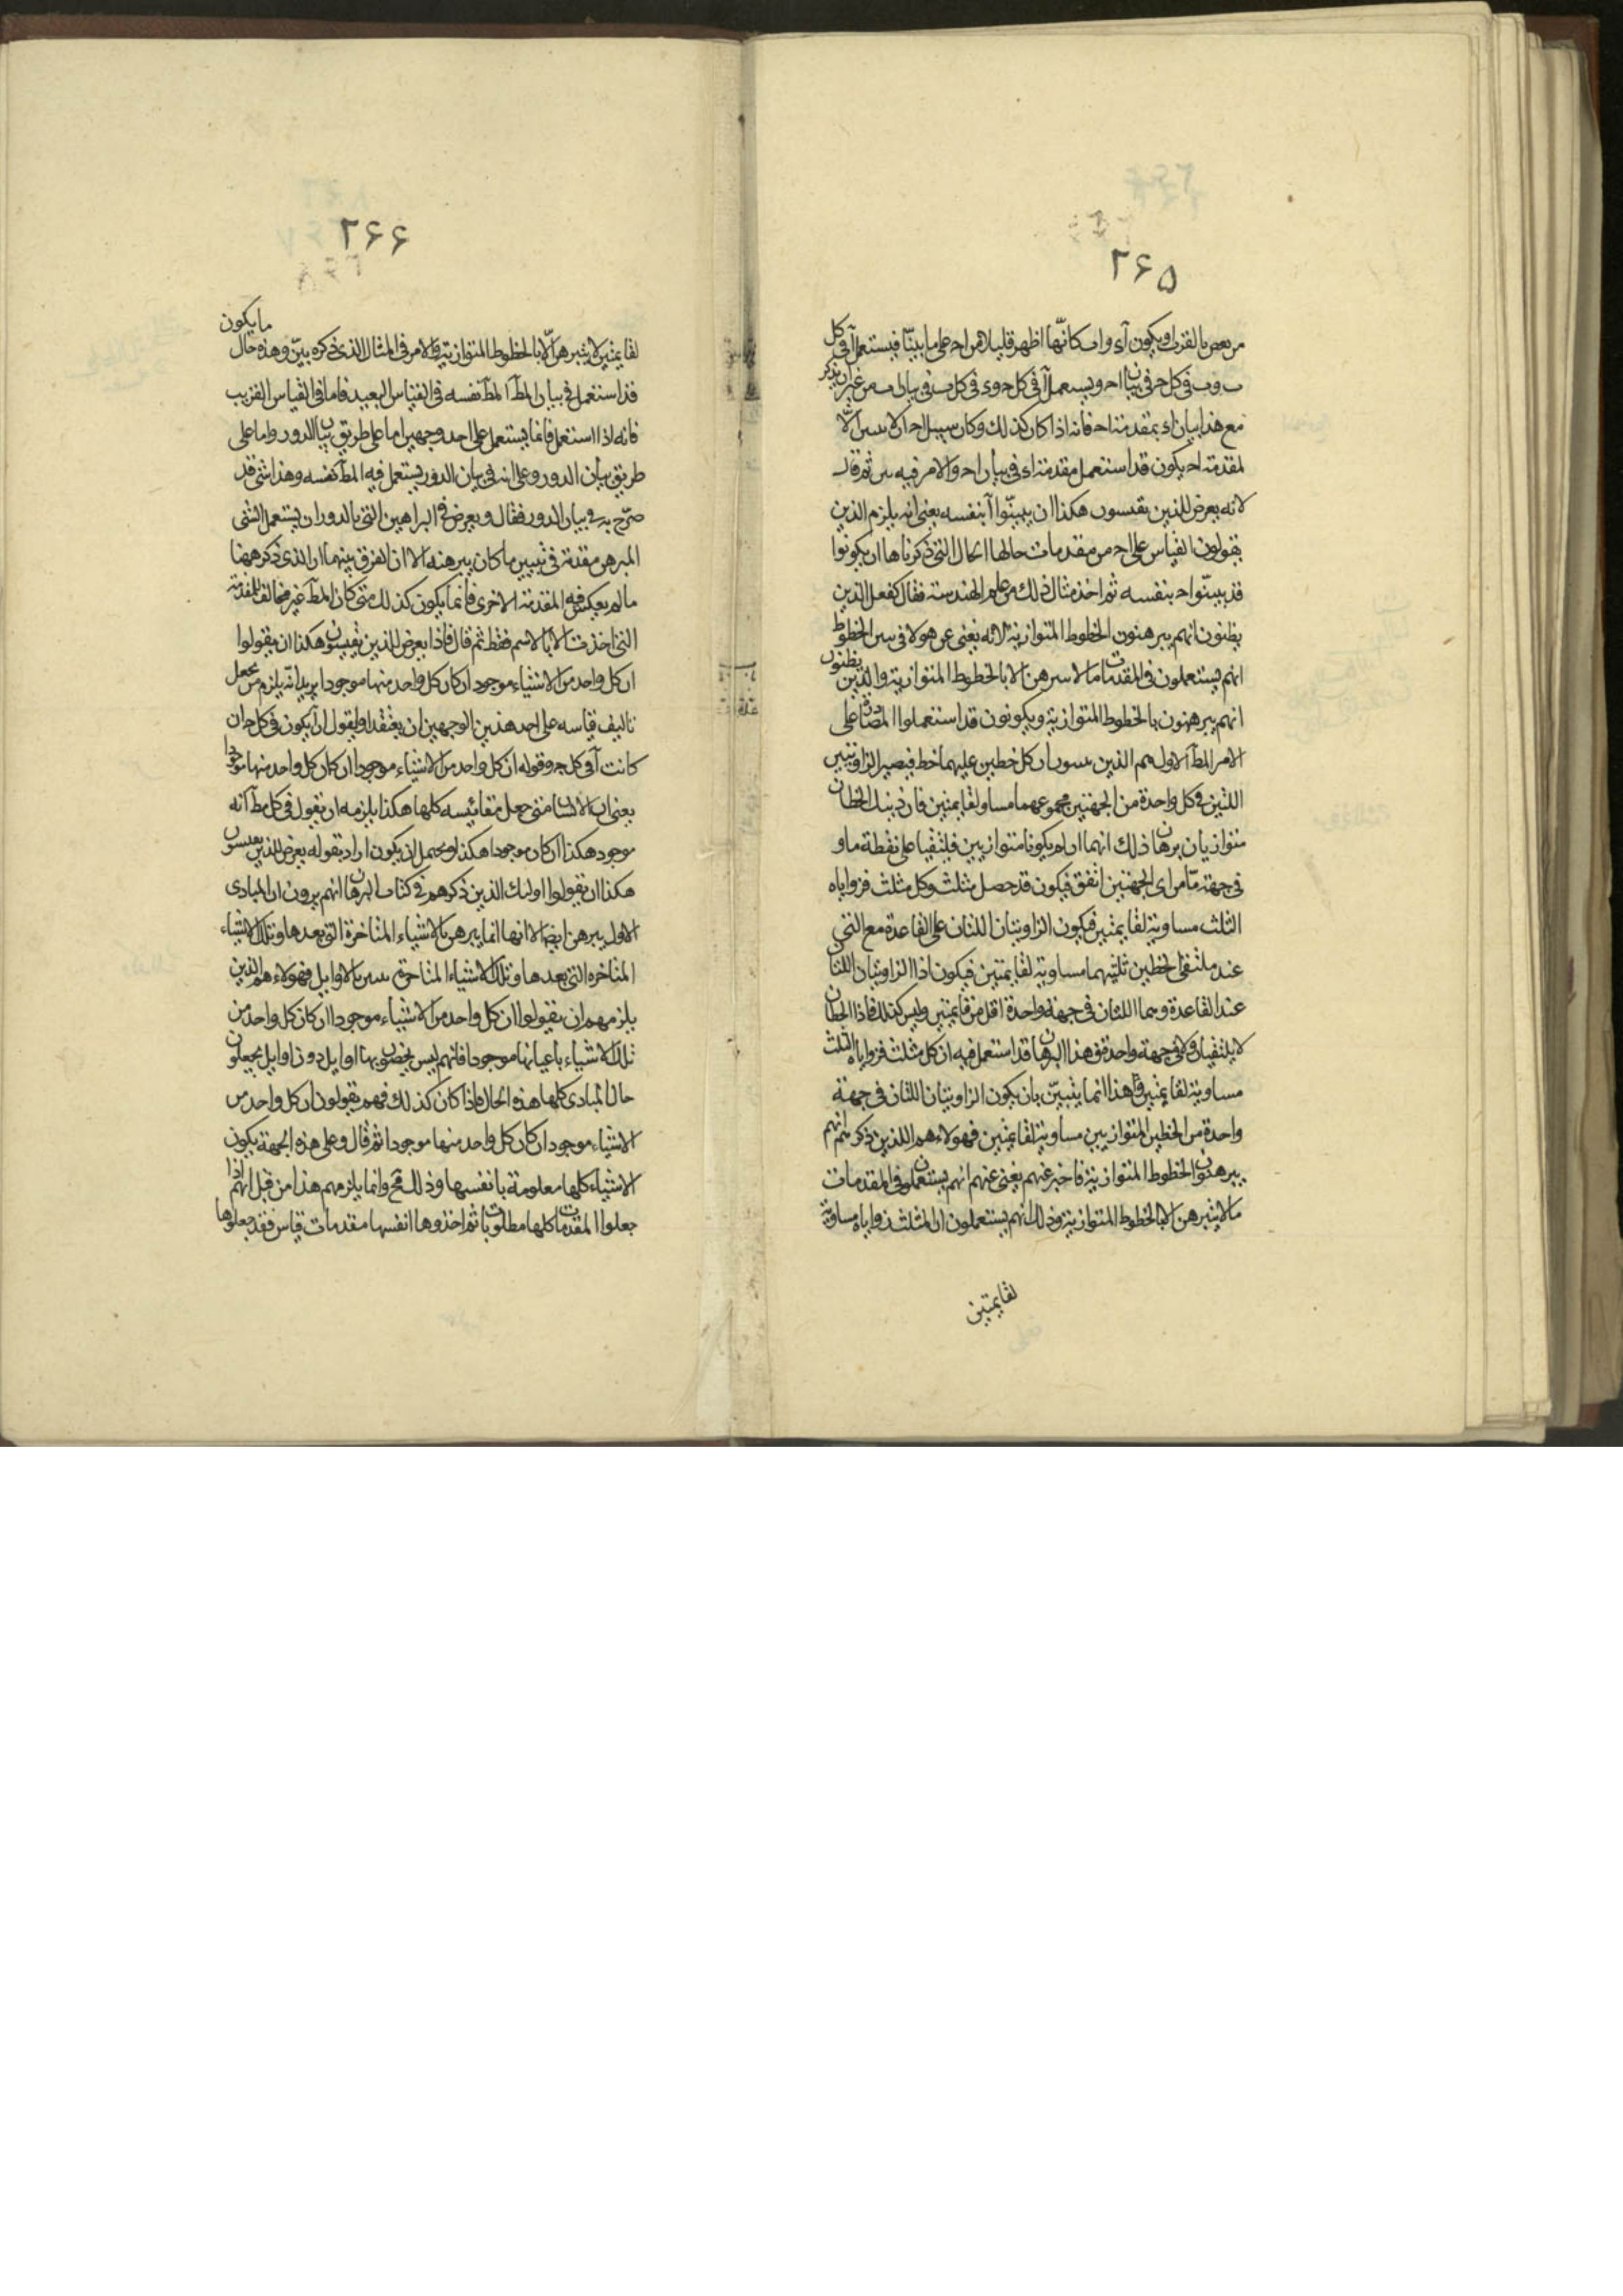 ٢۶۵
من بعض بالقرب ويكون آى و اب كانّها اظهر قليلا من اح على ما بيّنّا فيستعمل آ فى كل
ب و ب فى كل ح فى بيان اح ويستعمل آ فى كل ح و ى فى كل ب فى بيان اب من غير ان يذكر
مع هذا بيان اى بمقدمة اح فانه اذا كان كذلك وكان سبيل اح ان لا يبين الّا
لمقدمة اح يكون قد استعمل مقدمة اى فى بيان اح والامر فيه بين ثم قال
لانه يعرض للذين يقيسون هكذا ان يبيّنوا آ بنفسه يعنى انه يلزم الذين
يقولون القياس على اح من مقدمات حالها الحال التى ذكرناها ان يكونوا
قد بيّنوا اح بنفسه ثم اخذ مثال ذلك من علم الهندسة فقال كفعل الذين
يظنون انهم يبرهنون الخطوط المتوازية لانه يعنى عن هولا فى الخطوط
انهم يستعملون فى المقدمات ما لا يبرهن الا بالخطوط المتوازية والذين يظنون
انهم يبرهنون بالخطوط المتوازية ويكونون قد استعملوا المصادرة على
الامر المط الاول هم الذين يبينون ان كل خطين عليهما خط فيصير الزاويتين
اللتين فى كل واحدة من الجهتين مجموعهما مساو لقايمتين فان ذينك الخطان
متوازيان برهان ذلك انهما ان لم يكونا متوازيين فيلتقيا على نقطة ما و
فى جهة مّا من اى الجهتين اتفق فيكون قد حصل مثلث وكل مثلث فزواياه
الثلث مساوية لقايمتين فيكون الزاويتان اللتان على القاعدة مع التى
عند ملتقى الخطين ثلثيهما مساوية لقايمتين فيكون اذا الزاويتان اللتان
عند القاعدة وهما اللتان فى جهة واحدة اقل من قايمتين وليس كذلك فاذا الخطان
لا يلتقيان ولا فى جهة واحدة فى هذا البرهان قد استعمل فيه ان كل مثلث فزواياه الثلث
مساوية لقايمتين وهذا انما يتبيّن بان يكون الزاويتان اللتان فى جهة
واحدة من الخطين المتوازيين مساوية لقايمتين فهولاء هم اللذين ذكر انهم
يبرهنون الخطوط المتوازية فاخبر عنهم يعنى عنهم انهم يستعملون فى المقدمات
ما لا يتبرهن الا بالخطوط المتوازية وذلك انهم يستعملون ان المثلث زواياه مساوية
لقايمتين
٢۶۶
لقايمتين لا يتبرهن الّا بالخطوط المتوازية والامر فى المثال الذى ذكره بيّن وهذه حال ما يكون
قد استعمل فى بيان المط المط نفسه فى القياس البعيد فاما فى القياس القريب
فانه اذا استعمل فانما يستعمل على احد وجهين اما على طريق بيان الدور واما على
طريق بيان الدور وعلى انه فى بيان الدور يستعمل فيه المط نفسه وهذا شى قد
صرّح به فى بيان الدور فقال ويعرض فى البراهين التى بالدور ان يستعمل الشى
المبرهن مقدمة فى تبيين ما كان يبرهنه الا ان الفرق بينهما ان الذى ذكر ههنا
ما لم يعكس فيه المقدمة الاخرى فانما يكون كذلك متى كان المط غير مخالف للمقدمة
التى اخذت الا بالاسم فقط ثم قال فاذا يعرض للذين يقيسون هكذا ان يقولوا
ان كل واحد من الاشياء موجود ان كان كل واحد منها موجودا يريد انه يلزم من يجعل
تاليف قياسه على احد هذين الوجهين ان يعتقد او يقول ان آ يكون فى كل ح ان
كانت آ فى كل ح وقوله ان كل واحد من الاشياء موجود ان كان كل واحد منها موجودا
يعنى ان الانسان متى جعل مقائيسه كلها هكذا يلزمه ان يقول فى كل مط انه
موجود هكذا ان كان موجودا هكذا ويحتمل ان يكون اراد بقوله يعرض للذين يقيسون
هكذا ان يقولوا اولئك الذين ذكرهم فى كتاب البرهان انهم يرون ان المبادى
الاول يبرهن ايضا الا انها انما يبرهن بالاشياء المتاخرة التى بعدها وتلك الاشياء
المتاخره التى بعدها وتلك الاشياء المتاخرة يتبين بالاوايل فهولاء هم الذين
يلزمهم ان يقولوا ان كل واحد من الاشياء موجود ان كان كل واحد من
تلك الاشياء باعيانها موجودا فانهم ليس يخصون بها اوايل دون اوايل يجعلون
حال المبادى كلها هذه الحال فاذا كان كذلك فهم يقولون ان كل واحد من
الاشياء موجود ان كان كل واحد منها موجودا ثم قال وعلى هذه الجهة يكون
الاشياء كلها معلومة بانفسها وذلك مح وانما يلزمهم هذا من قبل انهم اذا
جعلوا المقدمات كلها مطلوبات ثم اخذوها انفسها مقدمات قياس فقد جعلوها